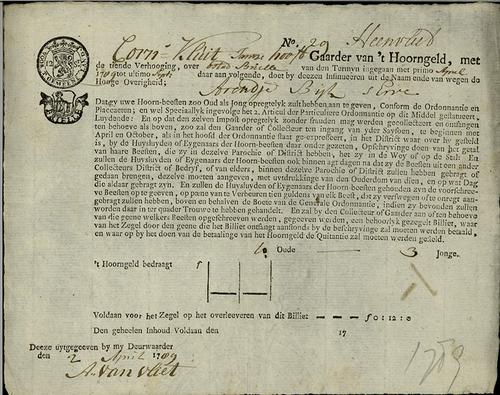 No. 29 Heenvliet
Corn.s Vliet Gaarder van 't Hoorngeld, met
de tiende Verhooging, over van den Termyn ingegaan met primo April
1789 tot ultimo Septr daar aan volgende, doet by deezen Insinueeren uit de Naam ende van wegen de
Hooge Overigheid;
Datge uwe Hoorn-beesten zoo Oud als Jong opregtelyk zult hebben aan te geven, Conform de Ordonnantie en
Placcaeten; en wel Speciaallyk ingevolge het 2. Articul der Particuliere Ordonnantie op dit Middel geëmaneert,
Luydende: En op dat den zelven Impost opregtelyk zonder fraudem mag werden gecollecteert en ontfangen
ten behoeve als boven, zoo zal den Gaarder of Collecteur ten ingang van yder Saysoen, te beginnen met
April en October, als in het hoofd der Ordonnantie staat ge-exprësseert, in zyn District waar over hy gesteld
is, by de Huysluyden of Eygenaars der Hoorn-beesten daar onder gezeten, Opschryvinge doen van het getal
van haare Beesten, die zy in dezelve Parochie of District hebben, het zy in de Wey of op de Stal: En
zullen de Huysluyden of Eygenaars der Hoorn-beesten ook binnen agt dagen na dat zy de Beesten uit een ander
Collecteurs District of Bedryf, of van elders, binnen dezelve Parochie of District zullen hebben gebragt of
gedaan brengen, dezelve moeten aangeven, met uytdrukkinge van den Ouderdom van dien, en op wat Dag
die aldaar gebragt zyn. En zullen de Huysluyden of Eygenaars der Hoorn-beesten gehouden zyn de voorschreve
Beesten op te geeven, op pœne van te Verbeuren tien guldens van elk Beest, dat zy verswegen of te onregt aan-
gebragt zullen hebben, boven en behalven de Boete van de Generale Ordonnantie, indien zy bevonden zullen
worden daar in ter quader Trouwe te hebben gehandelt. En zal by den Collecteur of Gaarder aan of ten behoeve
van die geene welkers Beesten opgeschreeven werden, gegeeven werden, een behoorlyk gezegelt Billiet, waar
van het Zegel door den geene die het Billiet ontfangt aanstonds by de beschryvinge zal moeten werden betaald,
en waar op by het doen van de betaalinge van het Hoorngeld de Quitantie zal moeten werden gesteld.
Oude — 3 Jonge.
't Hoorngeld bedraagt f
Voldaan voor het Zegel op het overleeveren van dit Billiet — — — f 0 : 12 : 0
Den geheelen Inhoud Voldaan den 17
Deeze uytgegeeven by my Deurwaarder
den 2 April 1789
A. van Vliet
1789